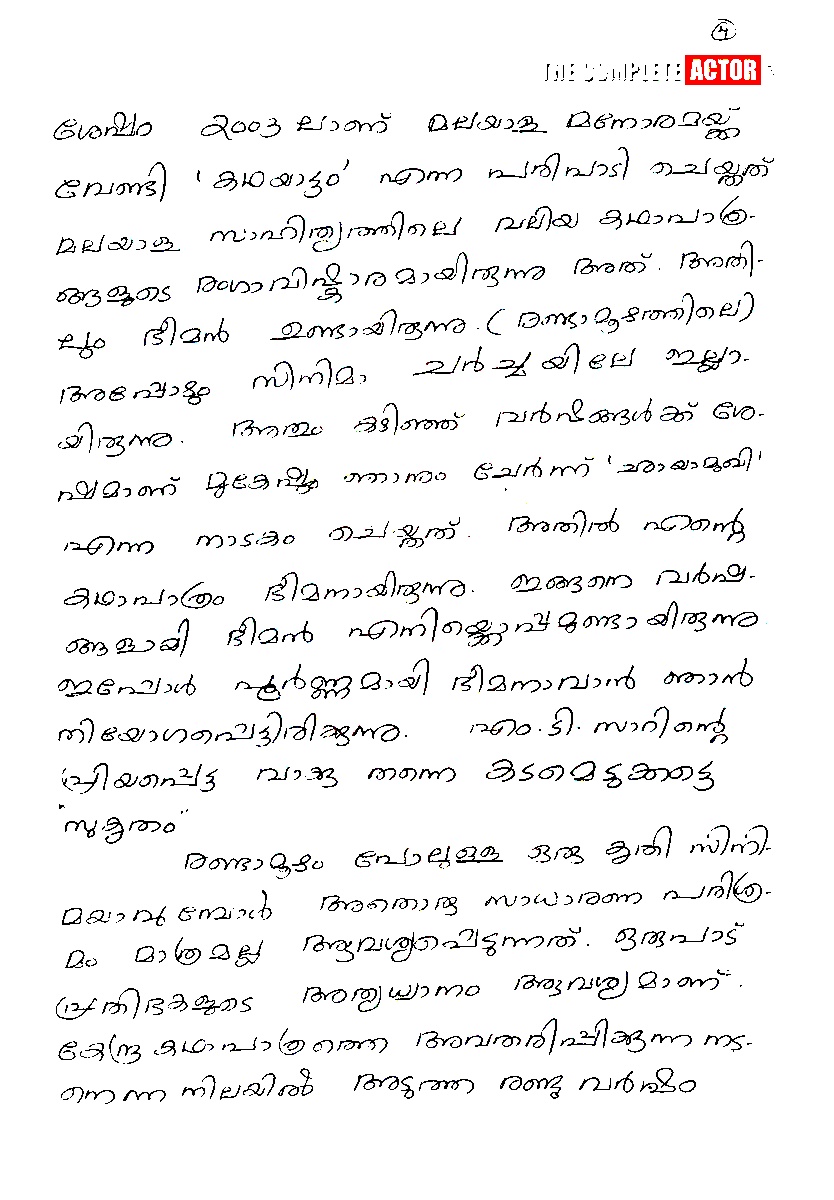 4
THE COMPLETE ACTOR
ശേഷം 2003 ലാണ് മലയാള മനോരമയ്ക്ക്
വേണ്ടി 'കഥയാട്ടം' എന്ന പരിപാടി ചെയ്തത്
മലയാള സാഹിത്യത്തിലെ വലിയ കഥാപാത്ര-
ങ്ങളുടെ രംഗാവിഷ്കാരമായിരുന്നു അത്. അതി-
ലും ഭീമൻ ഉണ്ടായിരുന്നു. (രണ്ടാമൂഴത്തിലെ)
അപ്പോഴും സിനിമാ ചർച്ചയിലേ ഇല്ലാ-
യിരുന്നു. അതും കഴിഞ്ഞ് വർഷങ്ങൾക്ക് ശേ-
ഷമാണ് മുകേഷും ഞാനും ചേർന്ന് 'ഛായാമുഖി'
എന്ന നാടകം ചെയ്തത്. അതിൽ എന്റെ
കഥാപാത്രം ഭീമനായിരുന്നു. ഇങ്ങനെ വർഷ-
ങ്ങളായി ഭീമൻ എനിയ്ക്കൊപ്പമുണ്ടായിരുന്നു
ഇപ്പോൾ പൂർണ്ണമായി ഭീമനാവാൻ ഞാൻ
നിയോഗപ്പെട്ടിരിക്കുന്നു. എം.ടി. സാറിന്റെ
പ്രിയപ്പെട്ട വാക്കു തന്നെ കടമെടുക്കട്ടെ
"സുകൃതം"
രണ്ടാമൂഴം പോലുള്ള ഒരു കൃതി സിനി-
മയാവുമ്പോൾ അതൊരു സാധാരണ പരിശ്ര-
മം മാത്രമല്ല ആവശ്യപ്പെടുന്നത്. ഒരുപാട്
പ്രതിഭകളുടെ അത്യധ്വാനം ആവശ്യമാണ്.
കേന്ദ്ര കഥാപാത്രത്തെ അവതരിപ്പിക്കുന്ന നട-
നെന്ന നിലയിൽ അടുത്ത രണ്ടു വർഷം